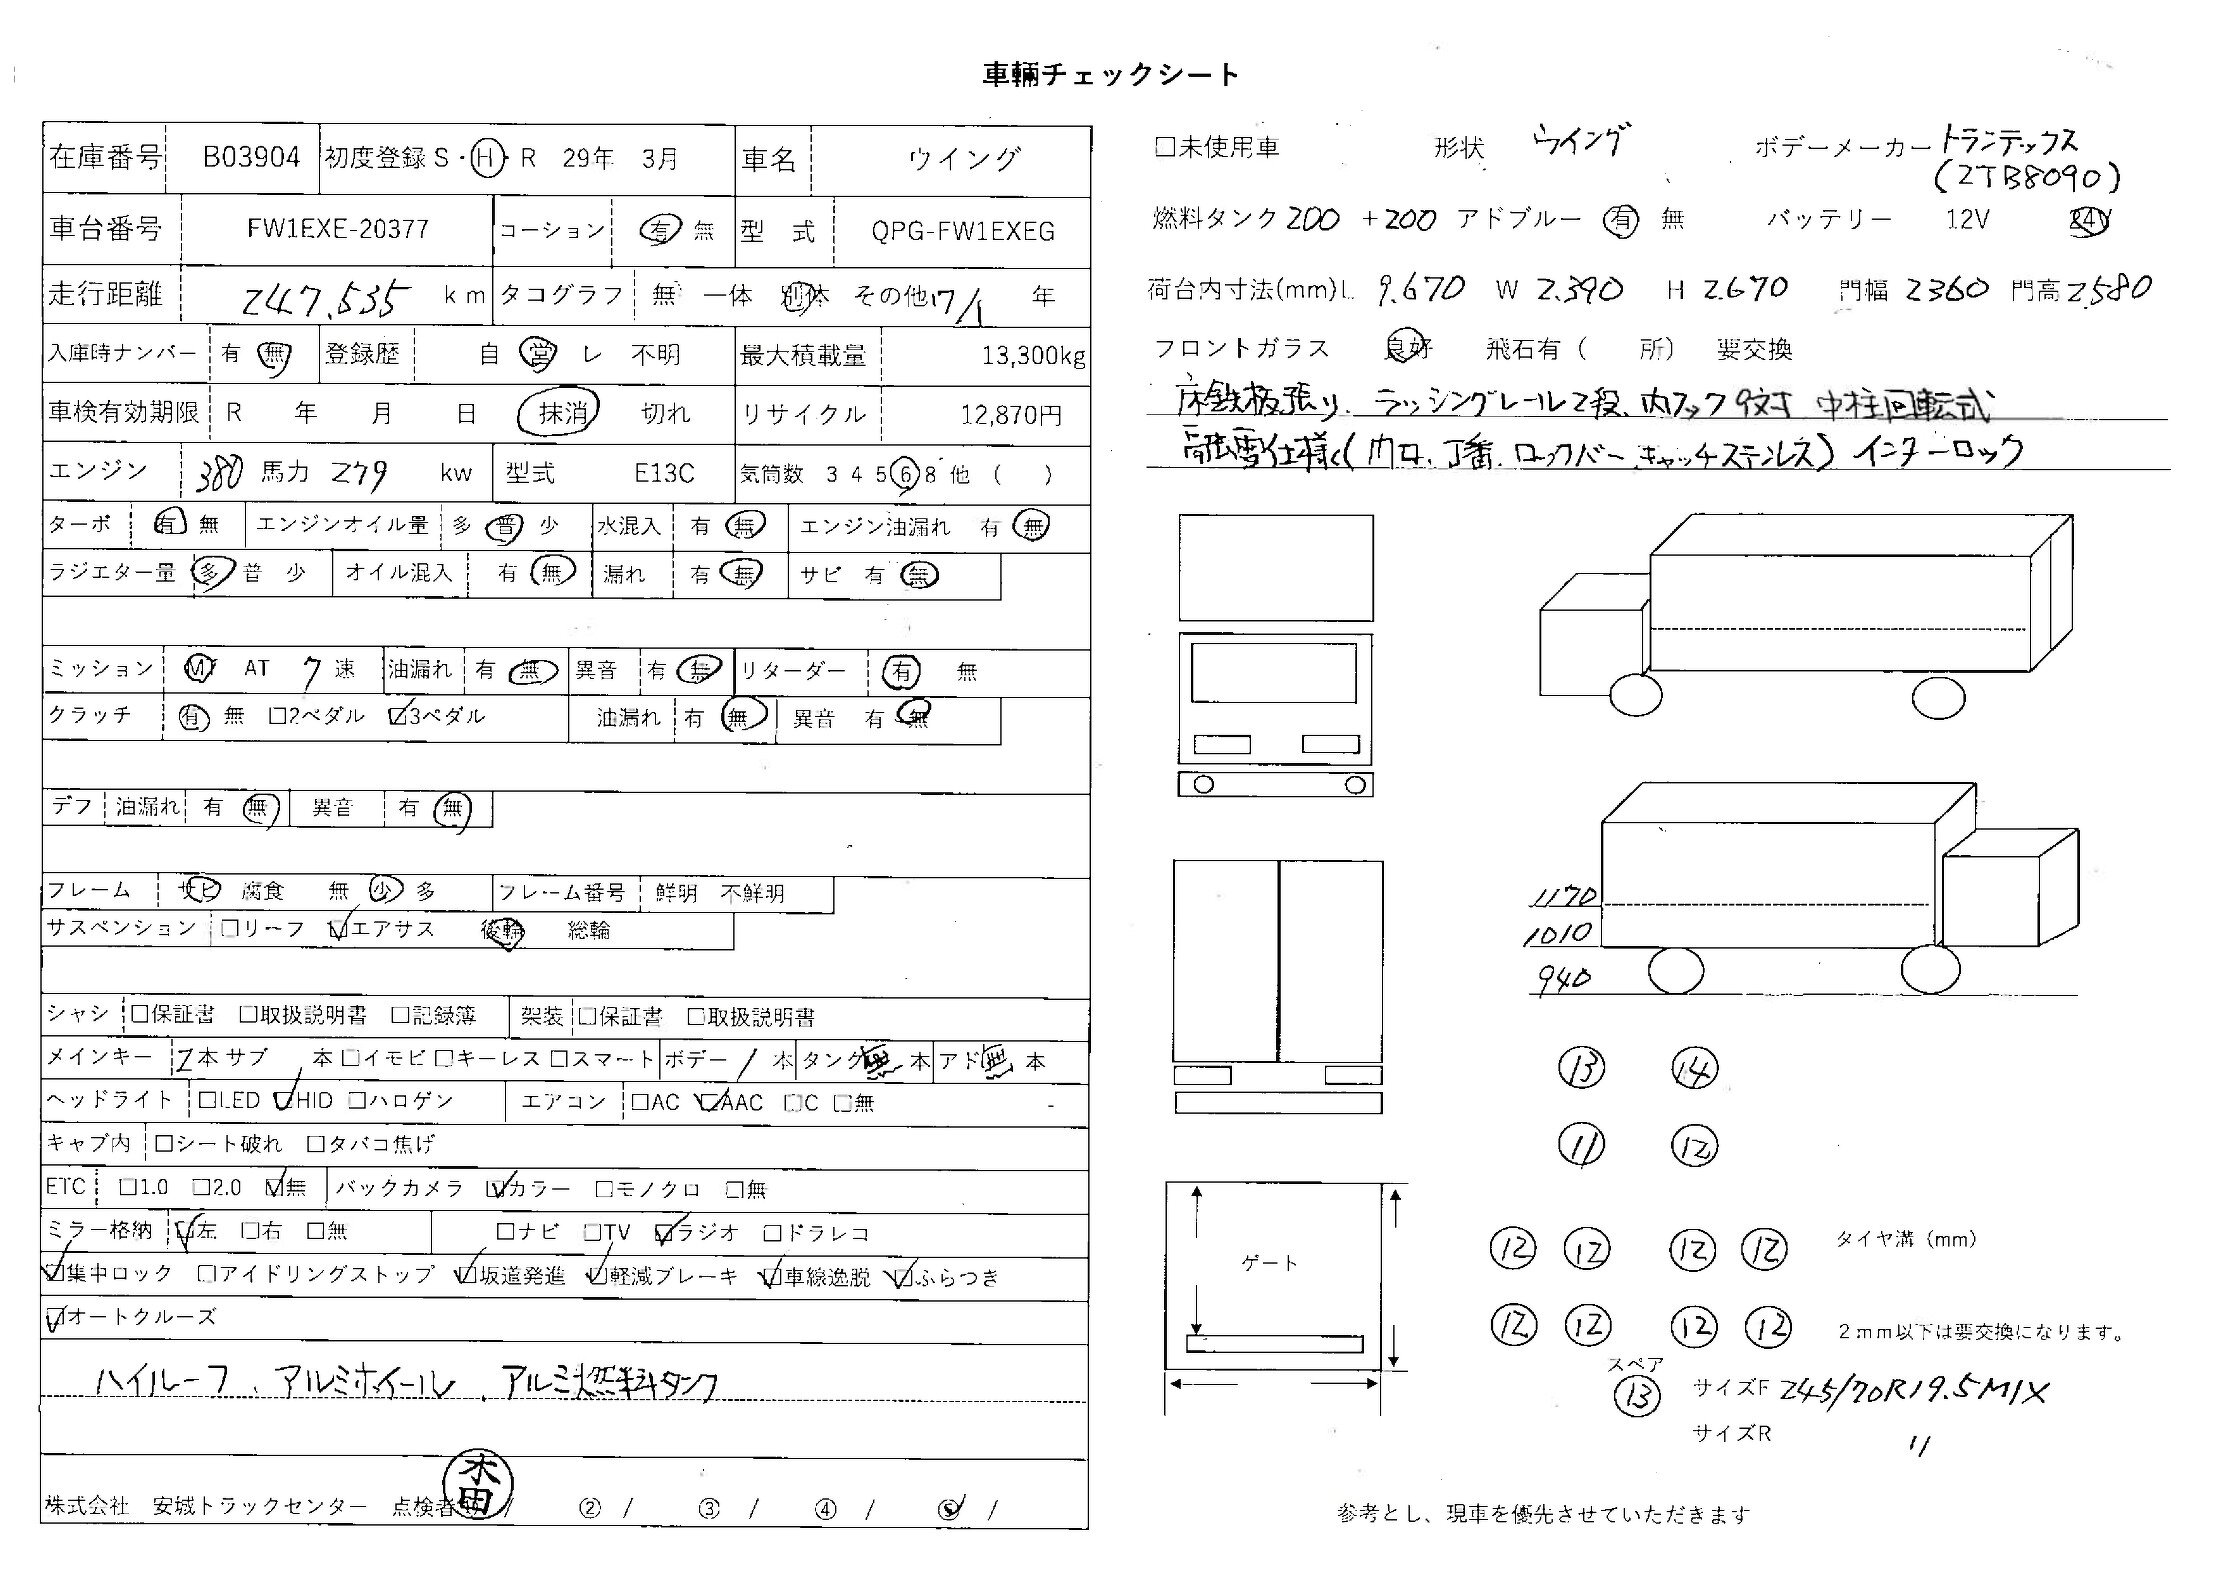 車輌チェックシート
在庫番号 B03904 初度登録 S・H・R 29年 3月 車名 ウイング
車台番号 FW1EXE-20377 コーション 有 無 型 式 QPG-FW1EXEG
走行距離 247,535 km タコグラフ 無 一体 別体 その他 17/1 年
入庫時ナンバー 有 無 登録歴 自 営 レ 不明 最大積載量 13,300kg
車検有効期限 R 年 月 日 抹消 切れ リサイクル 12,870円
エンジン 380 馬力 279 kw 型式 E13C 気筒数 3 4 5 6 8 他 ( )
ターボ 有 無 エンジンオイル量 多 普 少 水混入 有 無 エンジン油漏れ 有 無
ラジエター量 多 普 少 オイル混入 有 無 漏れ 有 無 サビ 有 無
ミッション M AT 7 速 油漏れ 有 無 異音 有 無 リターダー 有 無
クラッチ 有 無 □2ペダル ☑3ペダル 油漏れ 有 無 異音 有 無
デフ 油漏れ 有 無 異音 有 無
フレーム サビ 腐食 無 少 多 フレーム番号 鮮明 不鮮明
サスペンション □リーフ ☑エアサス 後輪 総輪
シャシ □保証書 □取扱説明書 □記録簿 架装 □保証書 □取扱説明書
メインキー 2本 サブ 本 □イモビ □キーレス □スマート ボデー 1 本 タンク 無 本 アド 無 本
ヘッドライト □LED ☑HID □ハロゲン エアコン □AC ☑AAC □C □無
キャブ内 □シート破れ □タバコ焦げ
ETC □1.0 □2.0 ☑無 バックカメラ ☑カラー □モノクロ □無
ミラー格納 ☑左 □右 □無 □ナビ □TV ☑ラジオ □ドラレコ
☑集中ロック □アイドリングストップ ☑坂道発進 ☑軽減ブレーキ ☑車線逸脱 ☑ふらつき
☑オートクルーズ
ハイルーフ、アルミホイール、アルミ燃料タンク
株式会社 安城トラックセンター 点検者 木田 / ② / ③ / ④ / ⑤ /
□未使用車 形状 ウイング ボデーメーカー トランテックス
(2TB8090)
燃料タンク 200 +200 アドブルー 有 無 バッテリー 12V 24V
荷台内寸法(mm)L 9.670 W 2.390 H 2.670 門幅 2360 門高 2580
フロントガラス 良好 飛石有 ( 所) 要交換
床鉄板張り、ラッシングレール2段、内フック9対 中柱回転式
融雪仕様(門口、丁番、ロックバー、キャッチステンレス) インターロック
1170
1010
940
13 14
11 12
12 12 12 12 タイヤ溝 (mm)
12 12 12 12 2mm以下は要交換になります。
スペア
13 サイズF 245/70R19.5 MIX
サイズR 〃
ゲート
参考とし、現車を優先させていただきます